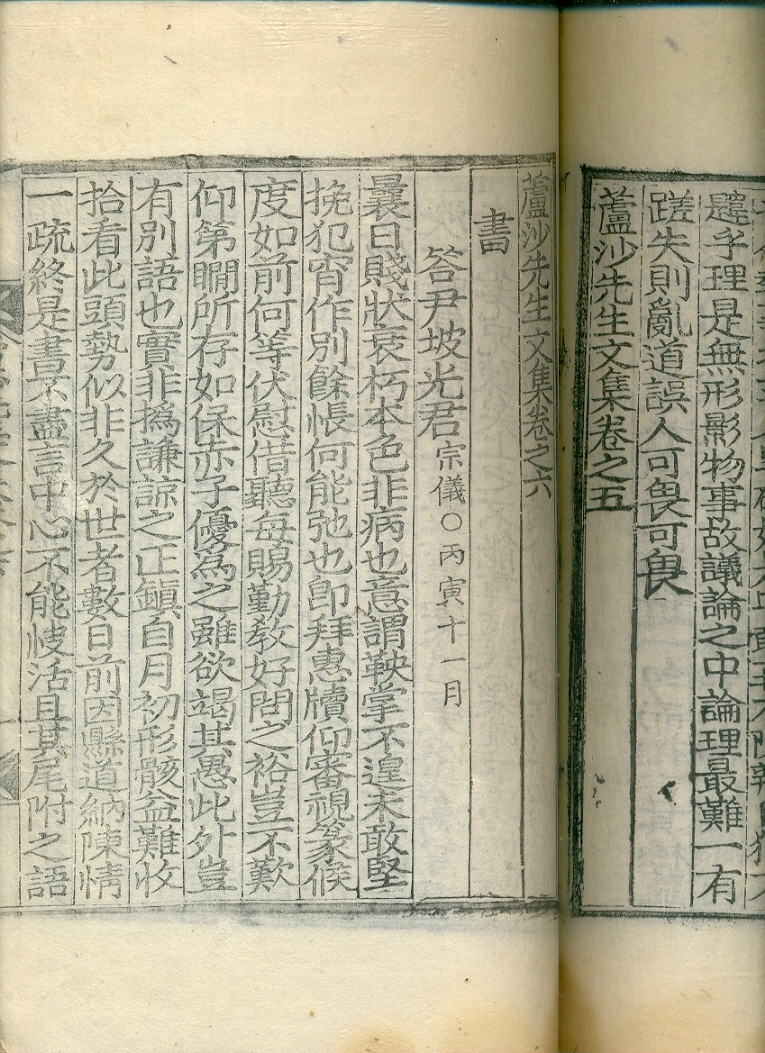 乎理是無形影物事故議論之中論理最難一有
蹉失則亂道誤人可畏可畏
蘆沙先生文集卷之五
蘆沙先生文集卷之六
書
答尹坡光君宗儀○丙寅十一月
曩日賤狀衰朽本色非病也意謂鞅掌不遑未敢堅
挽犯宵作別餘悵何能弛也卽拜惠牘仰審視篆候
度如前何等伏慰借聽毋賜勤敎好問之裕豈不歎
仰第瞯所存如保赤子優爲之雖欲竭其愚此外豈
有別語也實非撝謙諒之正鎭自月初形骸益難收
拾看此頭勢似非久於世者數日前因縣道納陳情
一疏終是書不盡言中心不能恔活且其尾附之語